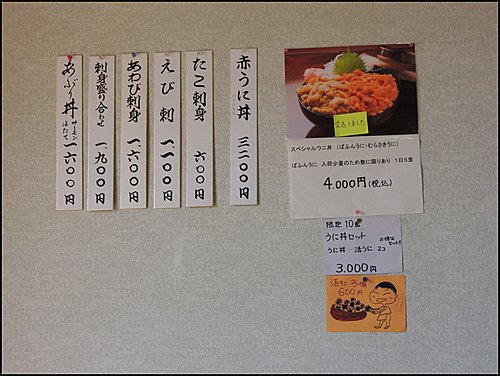 赤うに丼 三二〇〇円
たこ刺身 六〇〇円
えび刺 一、一〇〇円
あわび刺身 一、六〇〇円
刺身盛り合わせ 一、九〇〇円
あぶり丼 サーモン ほたて 一六〇〇円
完売しました
スペシャルウニ丼 (ばふんうに・むらさきうに)
ばふんうに 入荷少量のため数に限りあり 1日5食
4.000円(税込)
限定10食
うに丼セット
お得なセット!!
うに丼 活うに 2コ
3.000円
活うに 3個
600円